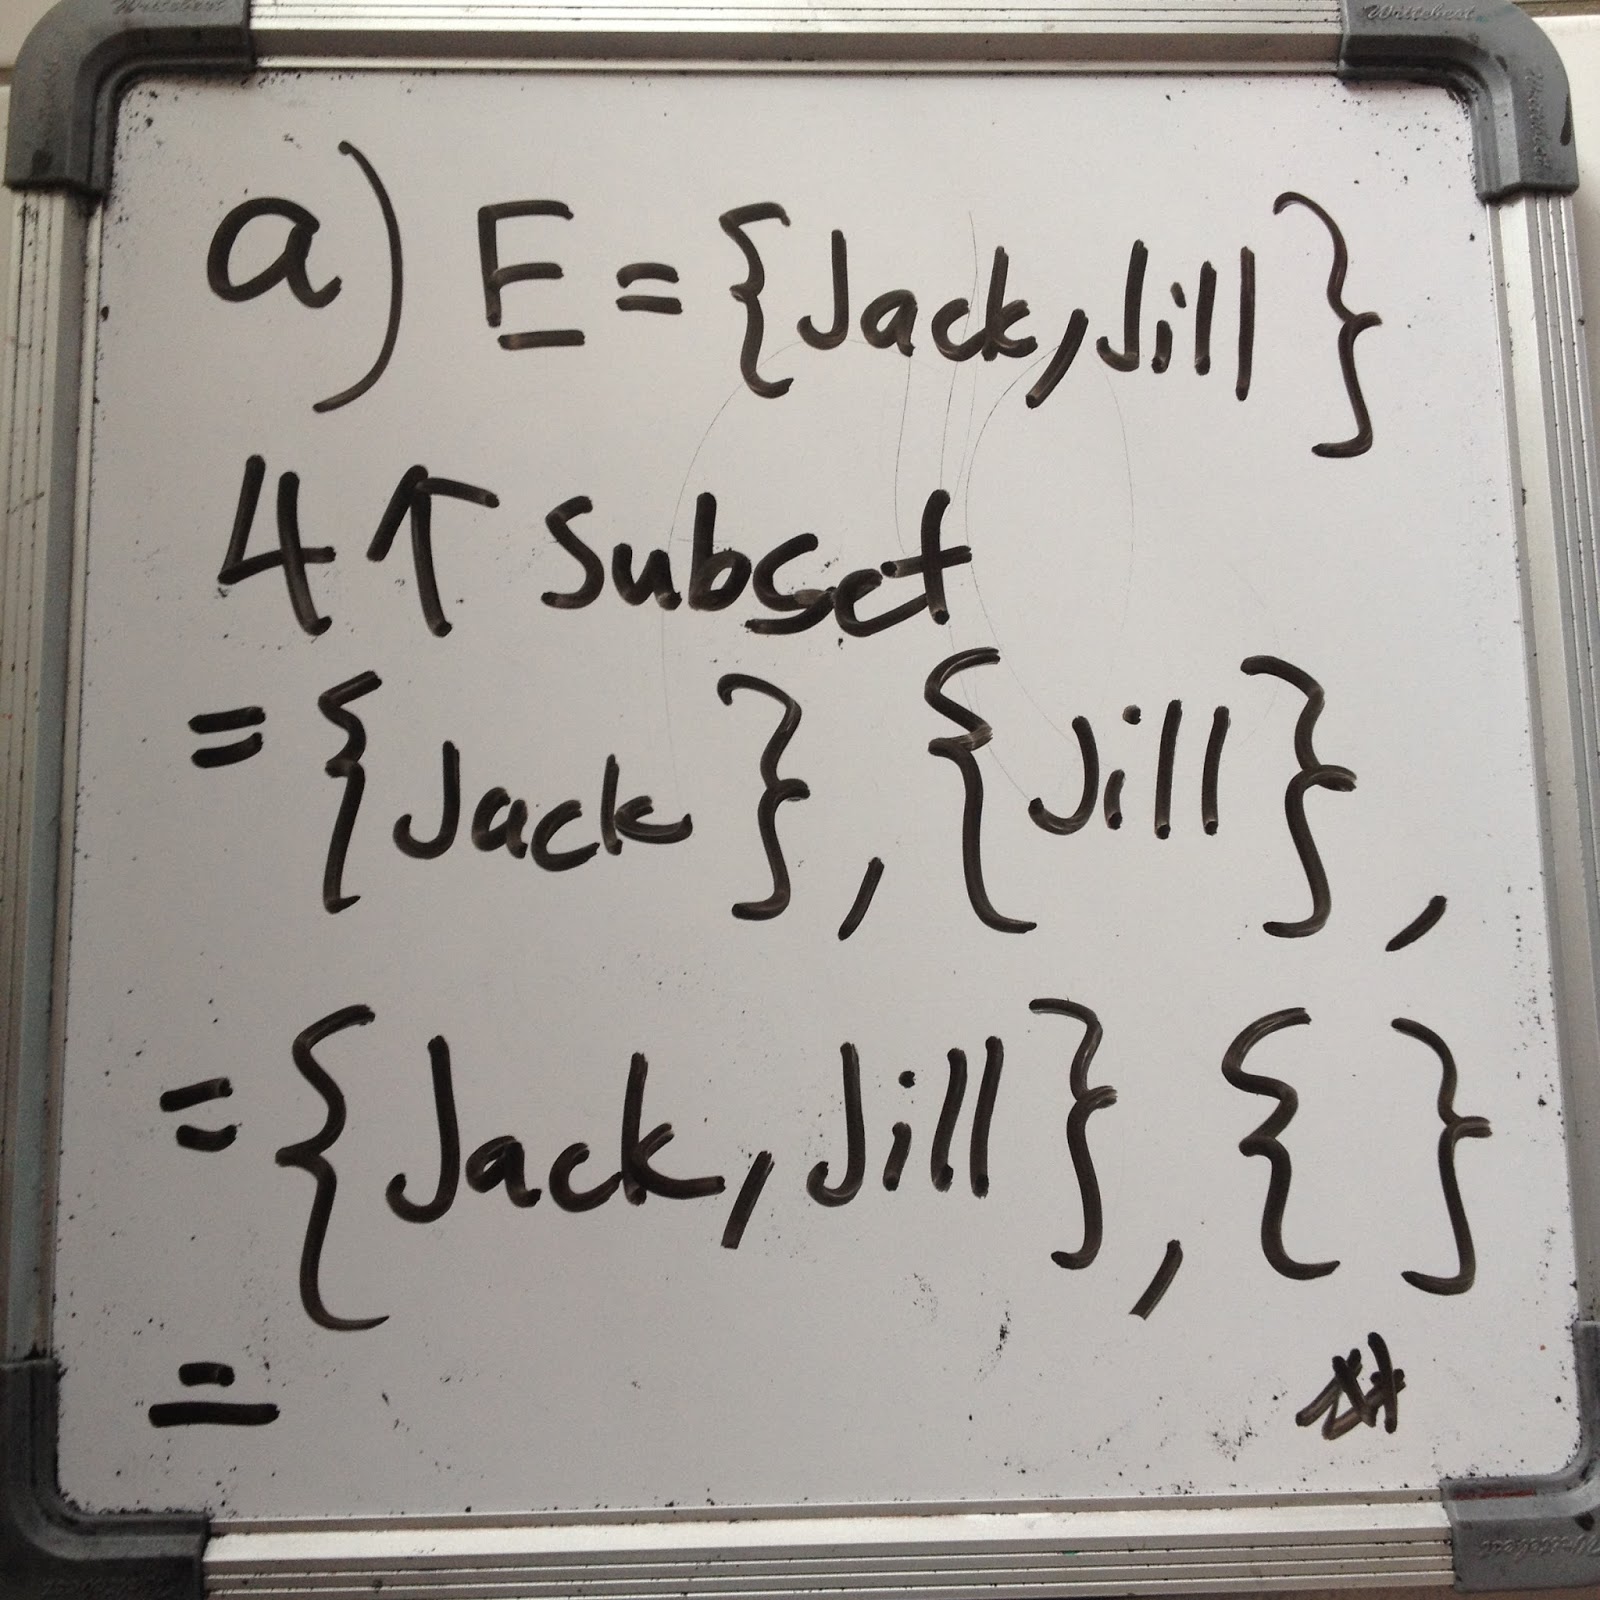 Writebest Writebest
a) E = {Jack, Jill}
4个 Subset
= {Jack}, {Jill},
= {Jack, Jill}, { }
=